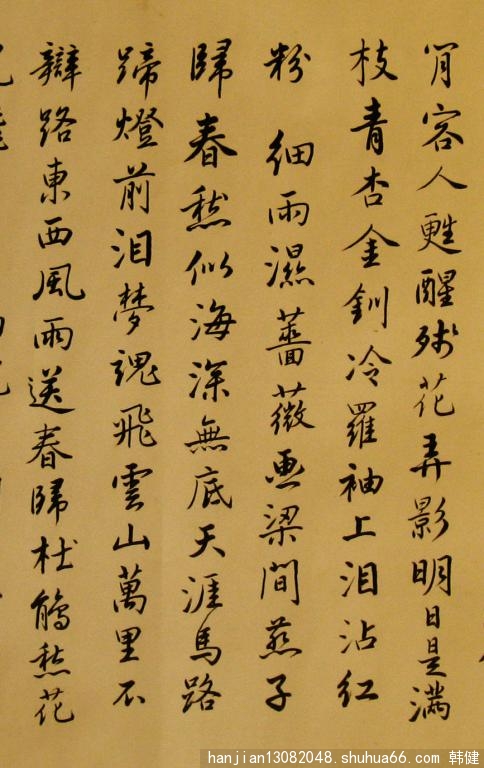 客人甦醒殘花弄影明日是滿
枝青杏金釧冷羅袖上泪沾紅
粉 細雨濕薔薇画梁間燕子
歸春愁似海深無底天涯馬路
蹄燈前泪夢魂飛雲山萬里不
辯路東西風雨送春歸杜鵑愁花
hanjian13082048.shuhua66.com 韩健